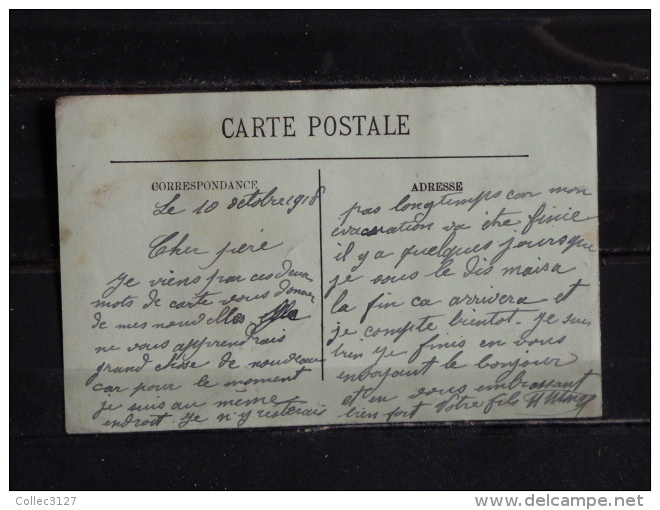 CARTE POSTALE
CORRESPONDANCE
Le 10 octobre 1918
Cher père
Je viens par ces deux
mots de carte vous donner
de mes nouvelles Elle
ne vous apprendrais
grand chose de nouveau
car pour le moment
je suis au meme
endroit. Je n'y resterais
ADRESSE
pas longtemps car mon
évacuation va être finie
il y a quelques jours que
je vous le dis mais a
la fin ca arrivera et
je compte bientot. Je suis
bien je finis en vous
envoyant le bonjour
et en vous embrassant
bien fort Votre fils
Collec3127
http://www.delcampe.net